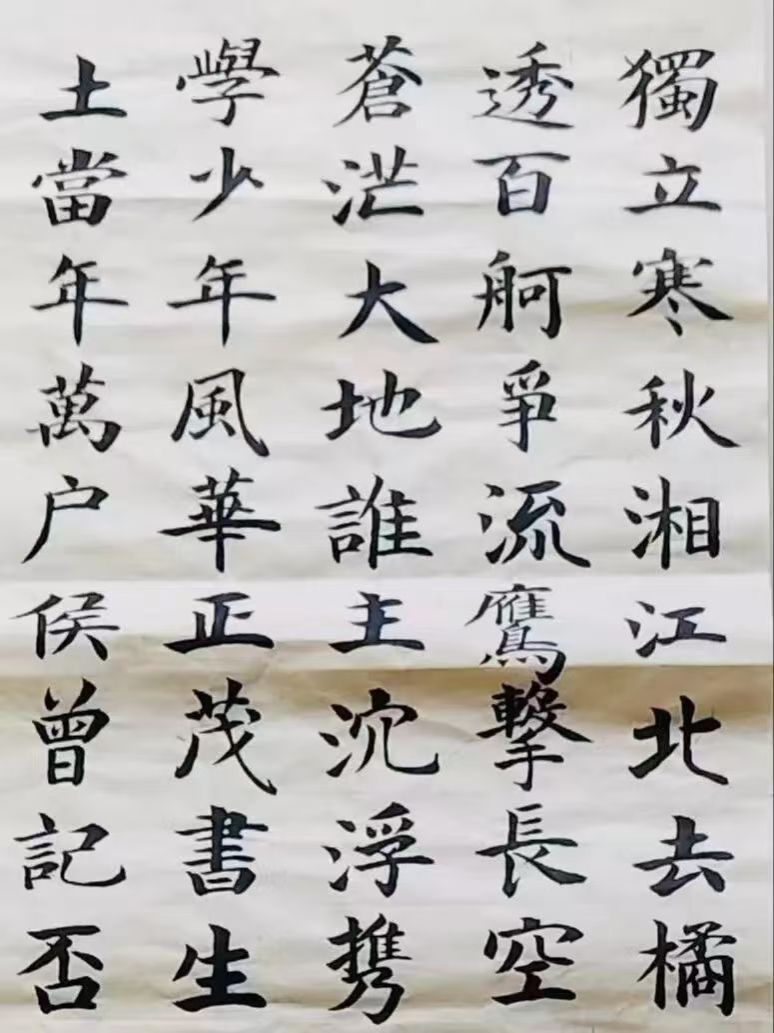 獨立寒秋湘江北去橘
透百舸爭流鷹擊長空
蒼茫大地誰主沉浮携
學少年風華正茂書生
土當年萬户侯曾記否